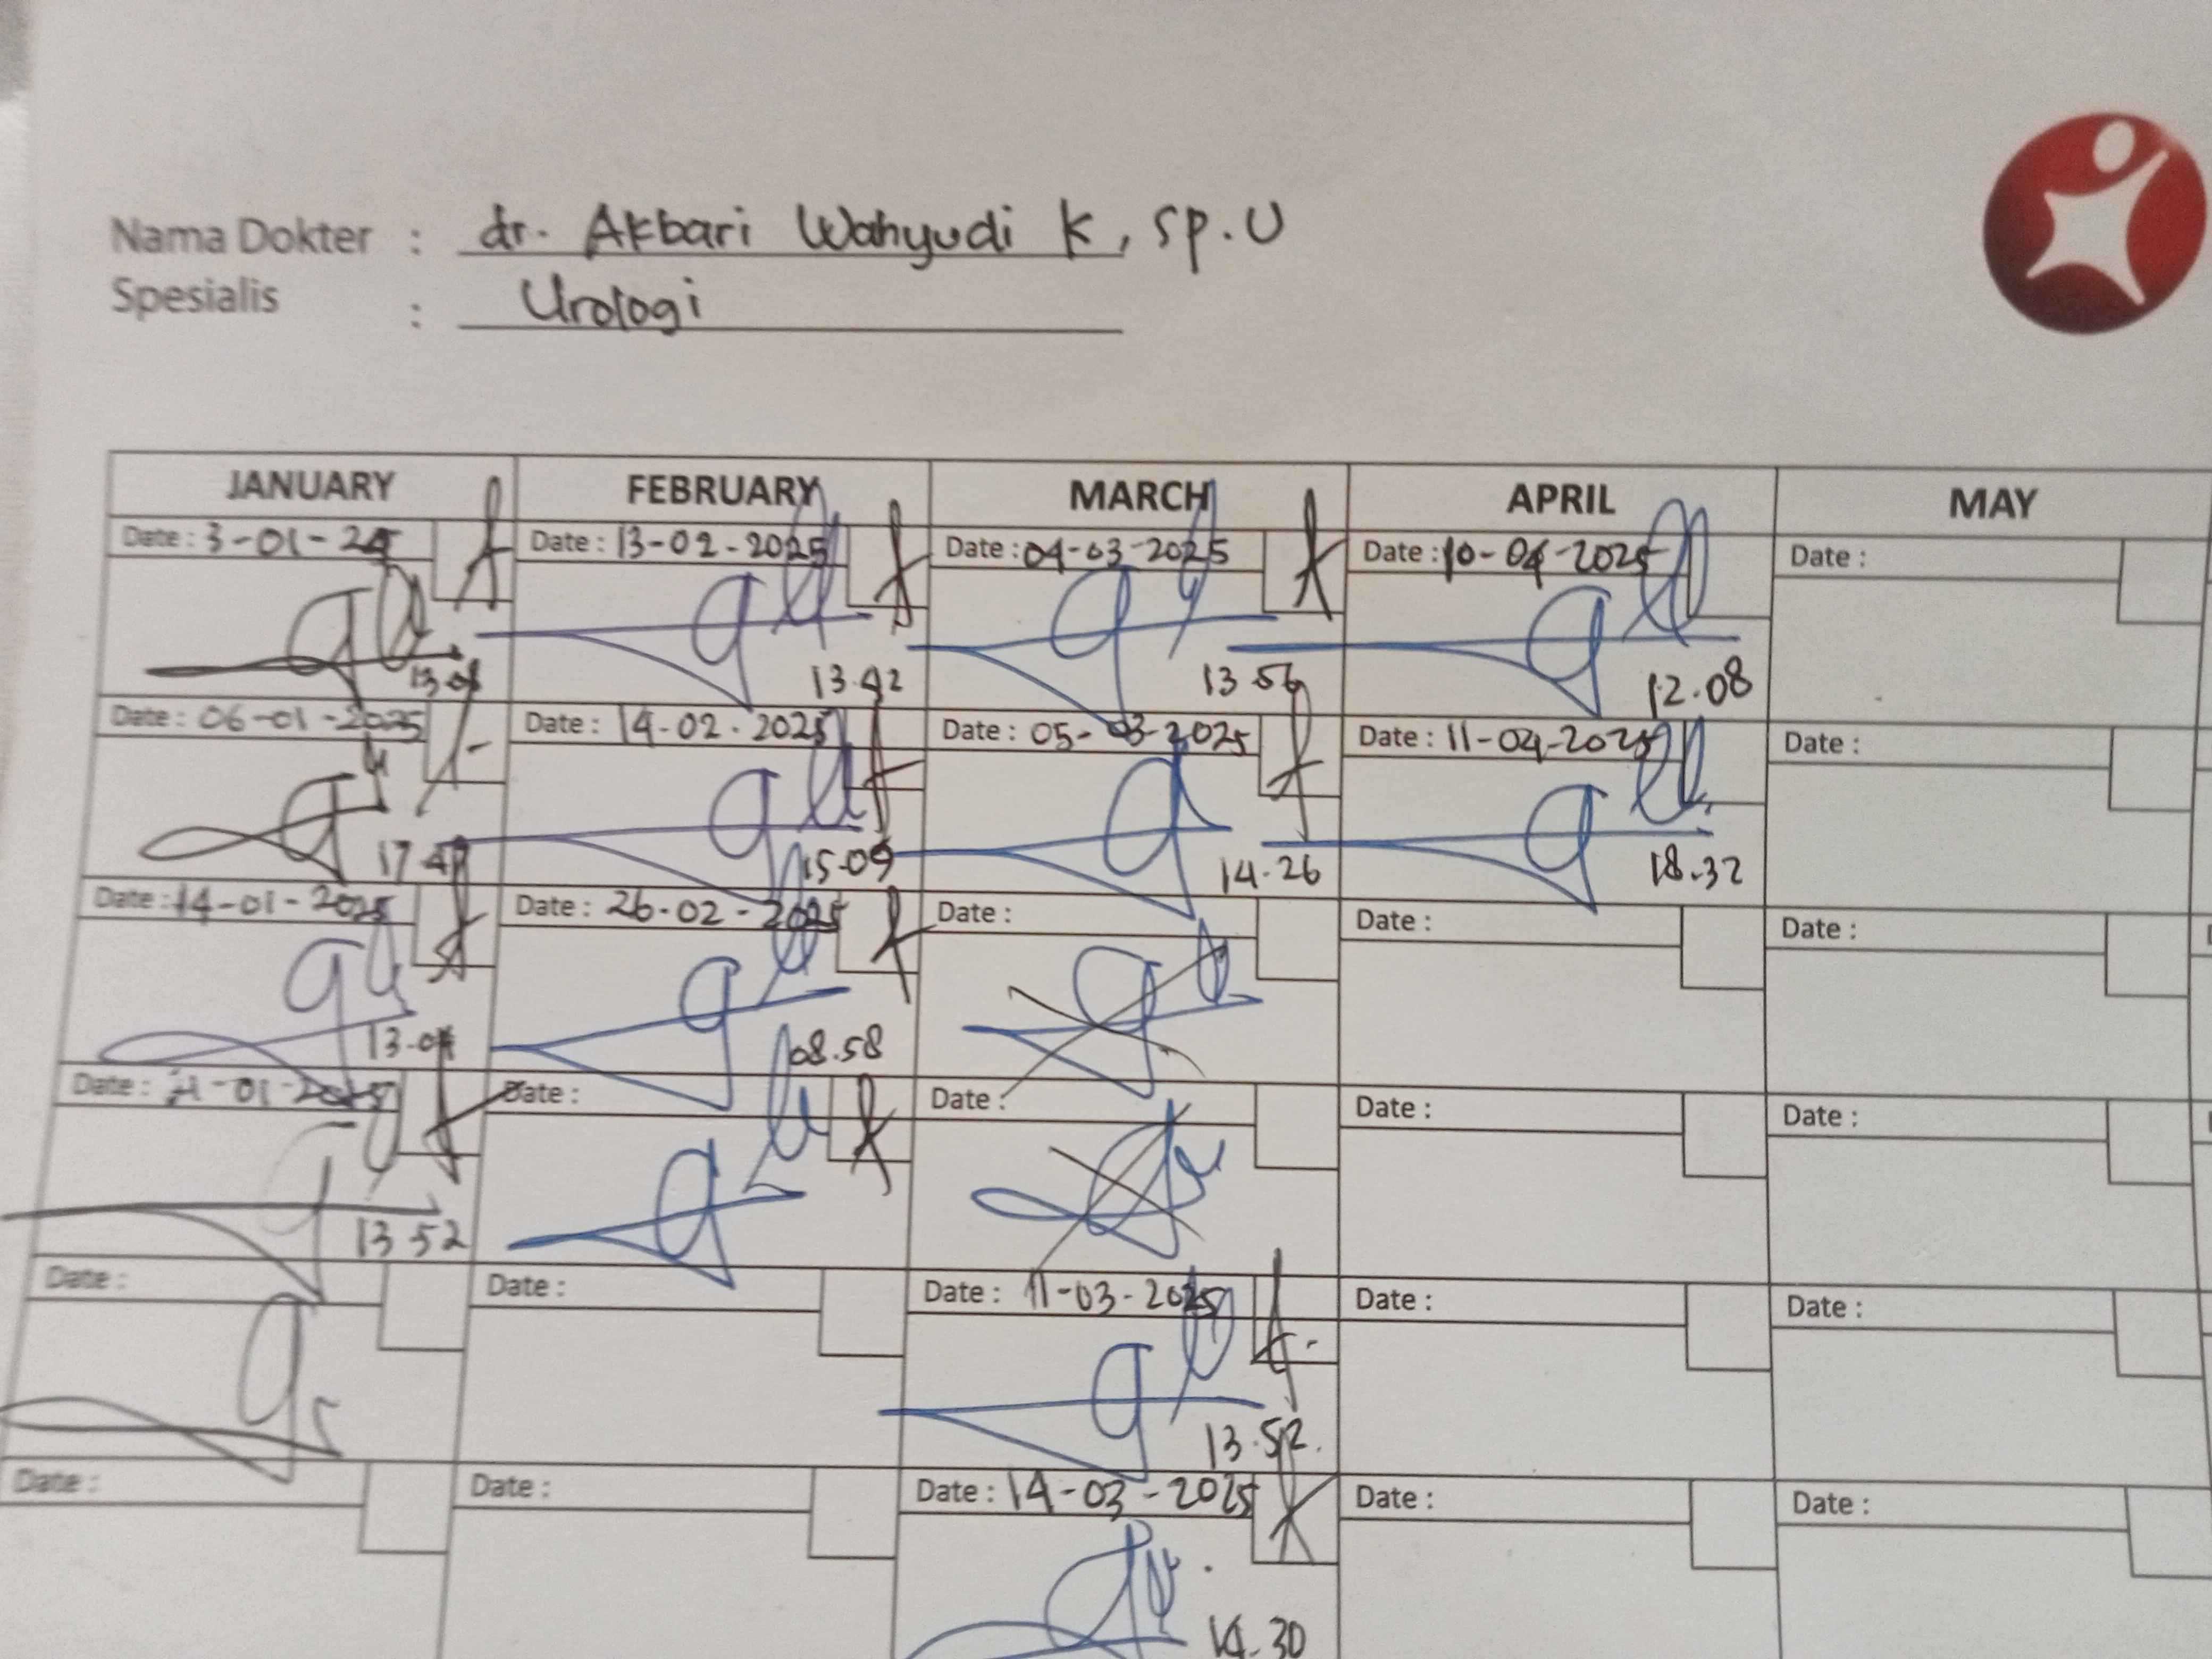 Nama Dokter : dr. Akbari Wahyudi K, Sp.U
Spesialis : Urologi
JANUARY FEBRUARY MARCH APRIL MAY
Date : 3-01-24 Date : 13-02-2025 Date : 04-03-2025 Date : 10-04-2025 Date :
13.42 13.56 12.08
Date : 06-01-2025 Date : 14-02.2025 Date : 05-03-2025 Date : 11-04-2025 Date :
15-09 14.26 18.32
Date : 14-01-2025 Date : 26-02-2025 Date : Date : Date :
08.58
Date : 21-01-2025 Date : Date : Date : Date :
13 52
Date : Date : Date : 11-03-2025 Date : Date :
13.52.
Date : Date : Date : 14-03-2025 Date : Date :
14.30